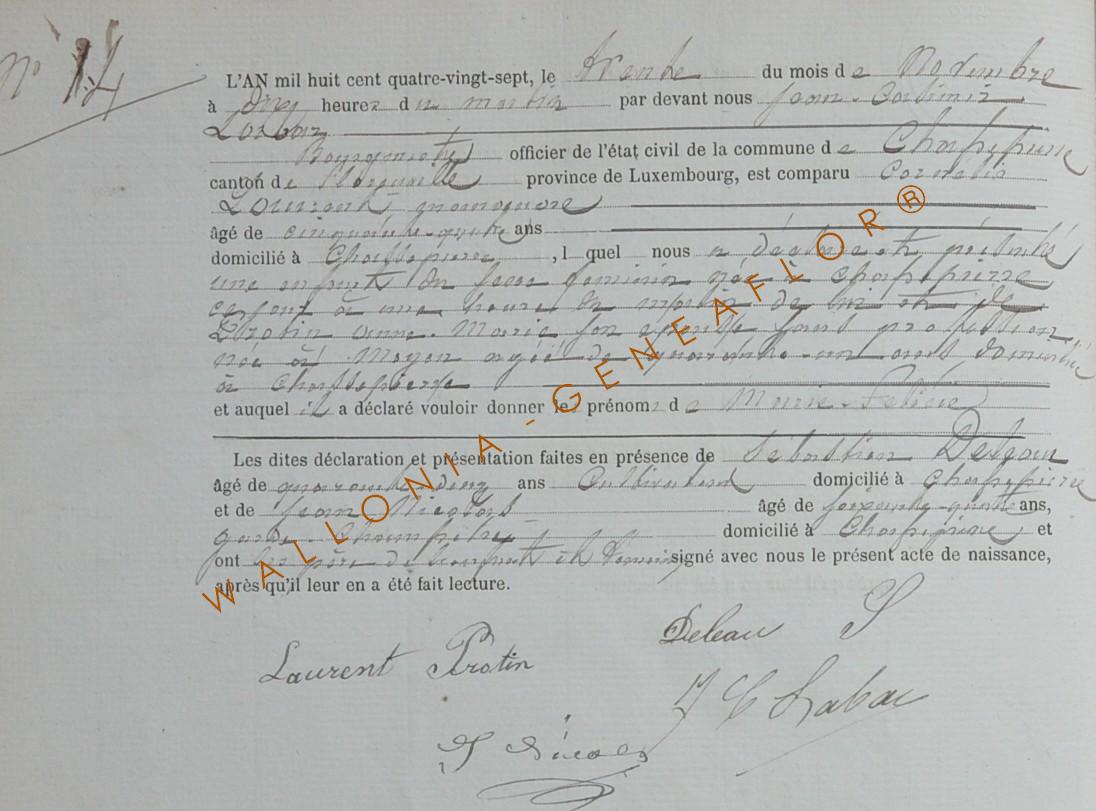 N° 14
L'AN mil huit cent quatre-vingt-sept, le trente du mois de Novembre
à onze heures du matin par devant nous Jean-Casimir
Bourgmestre officier de l'état civil de la commune de Chassepierre
canton de Florenville province de Luxembourg, est comparu Cornélis
Laurent, manoeuvre
âgé de cinquante-quatre ans
domicilié à Chassepierre, lequel nous a déclaré et présenté
une enfant du sexe féminin née à Chassepierre
à une heure du matin de lui et de
Protin Anne-Marie son épouse sans profession
née à Moyen agée de quarante-un ans domiciliée
à Chassepierre
et auquel il a déclaré vouloir donner les prénoms de Marie-Félicie
Les dites déclaration et présentation faites en présence de Sébastien Deleau
âgé de quarante-cinq ans Cultivateur domicilié à Chassepierre
et de Jean Nicolas âgé de soixante-quatre ans,
garde Champêtre domicilié à Chassepierre et
ont les père de l'enfant et témoins signé avec nous le présent acte de naissance,
après qu'il leur en a été fait lecture.
Deleau S
Laurent Protin
WALLONIA-GENEAFLOR®